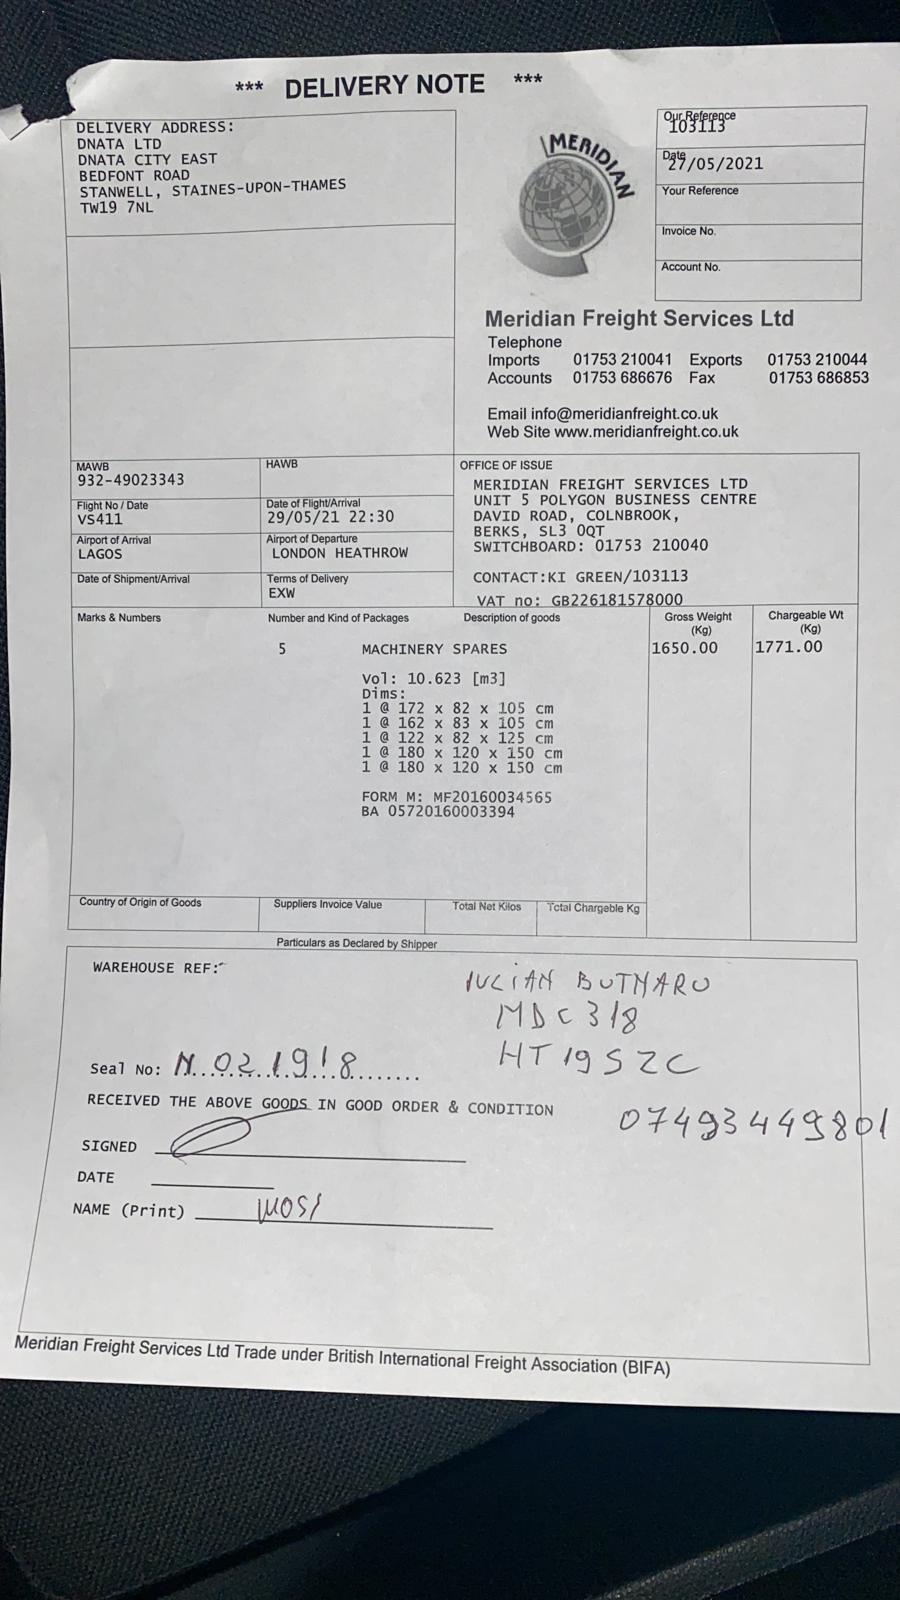 *** DELIVERY NOTE ***
DELIVERY ADDRESS:
DNATA LTD
DNATA CITY EAST
BEDFONT ROAD
STANWELL, STAINES-UPON-THAMES
TW19 7NL
MERIDIAN
Our Reference
103113
Date
27/05/2021
Your Reference
Invoice No.
Account No.
Meridian Freight Services Ltd
Telephone
Imports 01753 210041 Exports 01753 210044
Accounts 01753 686676 Fax 01753 686853
Email info@meridianfreight.co.uk
Web Site www.meridianfreight.co.uk
MAWB
932-49023343
HAWB
Flight No / Date
VS411
Date of Flight/Arrival
29/05/21 22:30
Airport of Arrival
LAGOS
Airport of Departure
LONDON HEATHROW
Date of Shipment/Arrival
Terms of Delivery
EXW
OFFICE OF ISSUE
MERIDIAN FREIGHT SERVICES LTD
UNIT 5 POLYGON BUSINESS CENTRE
DAVID ROAD, COLNBROOK,
BERKS, SL3 0QT
SWITCHBOARD: 01753 210040
CONTACT:KI GREEN/103113
VAT no: GB226181578000
Marks & Numbers
Number and Kind of Packages
Description of goods
Gross Weight
(Kg)
Chargeable Wt
(Kg)
5 MACHINERY SPARES 1650.00 1771.00
Vol: 10.623 [m3]
Dims:
1 @ 172 x 82 x 105 cm
1 @ 162 x 83 x 105 cm
1 @ 122 x 82 x 125 cm
1 @ 180 x 120 x 150 cm
1 @ 180 x 120 x 150 cm
FORM M: MF20160034565
BA 05720160003394
Country of Origin of Goods
Suppliers Invoice Value
Total Net Kilos
Total Chargeable Kg
Particulars as Declared by Shipper
WAREHOUSE REF:
IULIAN BUTNARU
MDC 318
HT19SZC
Seal No: N.021918
RECEIVED THE ABOVE GOODS IN GOOD ORDER & CONDITION
07493449801
SIGNED
DATE
NAME (Print)
Meridian Freight Services Ltd Trade under British International Freight Association (BIFA)